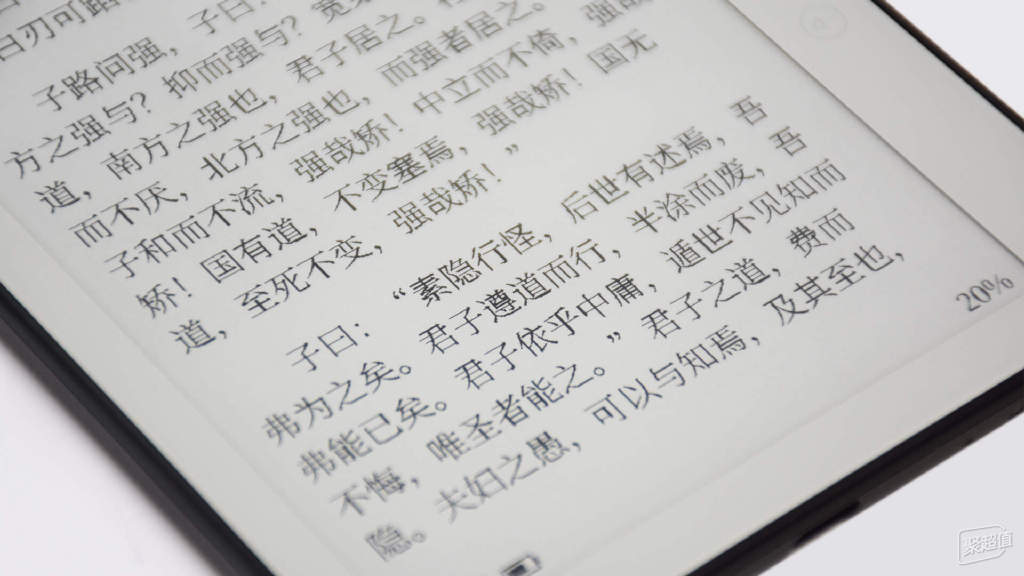 刃可蹈
子路问强，子曰：
方之强与？抑而强与？宽
道，南方之强也，君子居之。
而不厌，北方之强也，而强者居之。
子和而不流，强哉矫！中立而不倚，强哉
矫！国有道，不变塞焉，强哉矫！国无
道，至死不变，强哉矫！”
子曰：“素隐行怪，后世有述焉，吾
弗为之矣。君子遵道而行，半涂而废，吾
弗能已矣。君子依乎中庸，遁世不见知而
不悔，唯圣者能之。”君子之道，费而
隐。夫妇之愚，可以与知焉，及其至也，
20%
聚超值